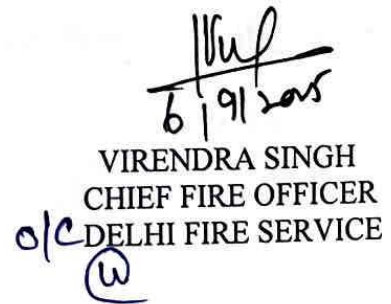 6/9/2025
VIRENDRA SINGH
CHIEF FIRE OFFICER
O/C DELHI FIRE SERVICE